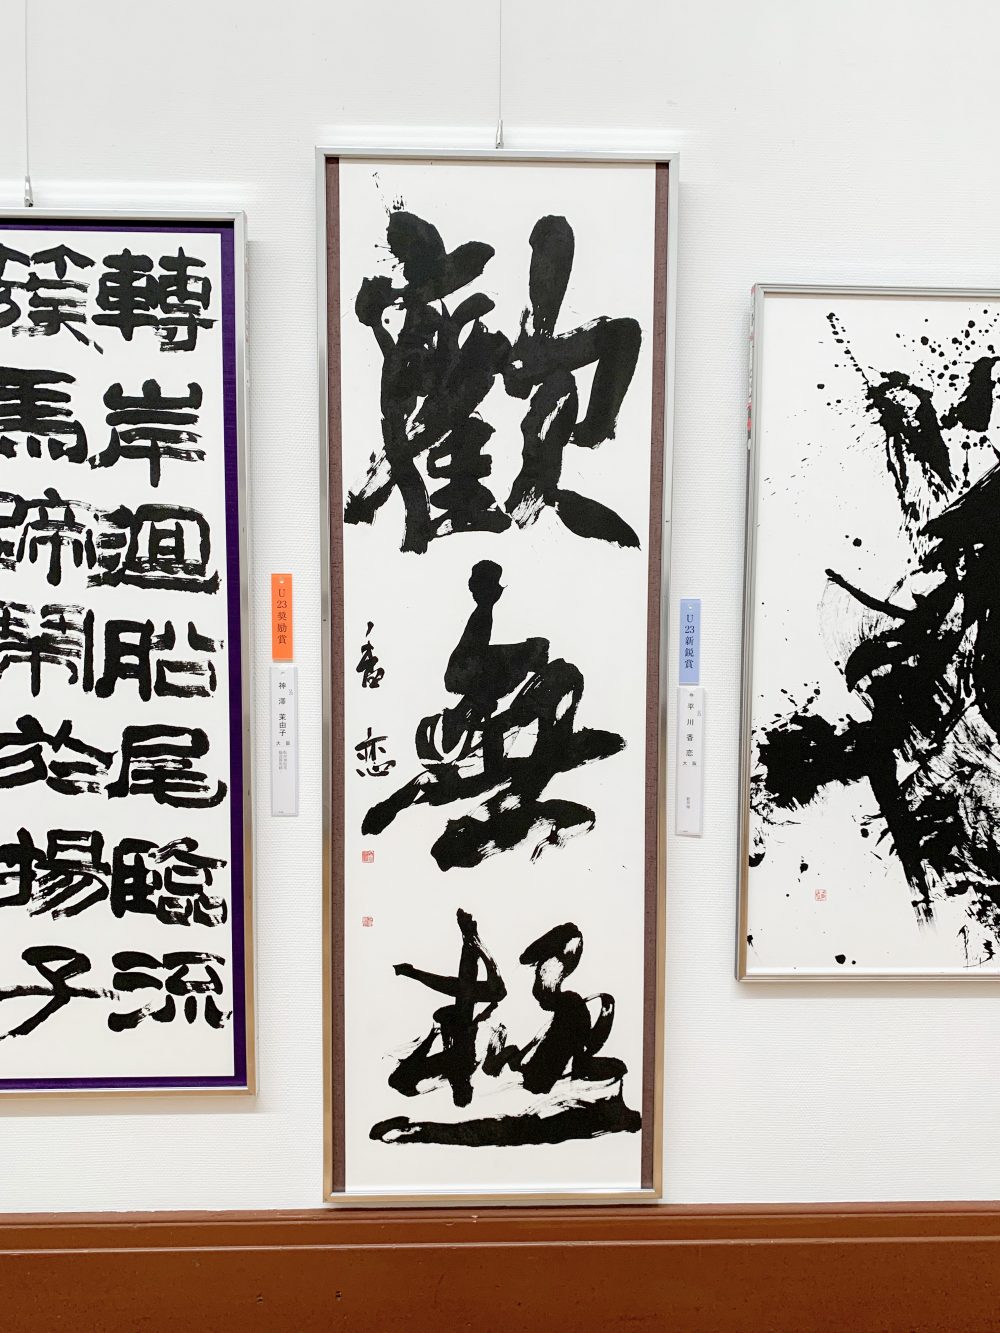 轉岸迴船尾臨流
簇馬蹄鬧於揚子
U23奨励賞
神澤茉由子
大阪
歡無極
香恋
U23新鋭賞
平川香恋
大阪
歡無極